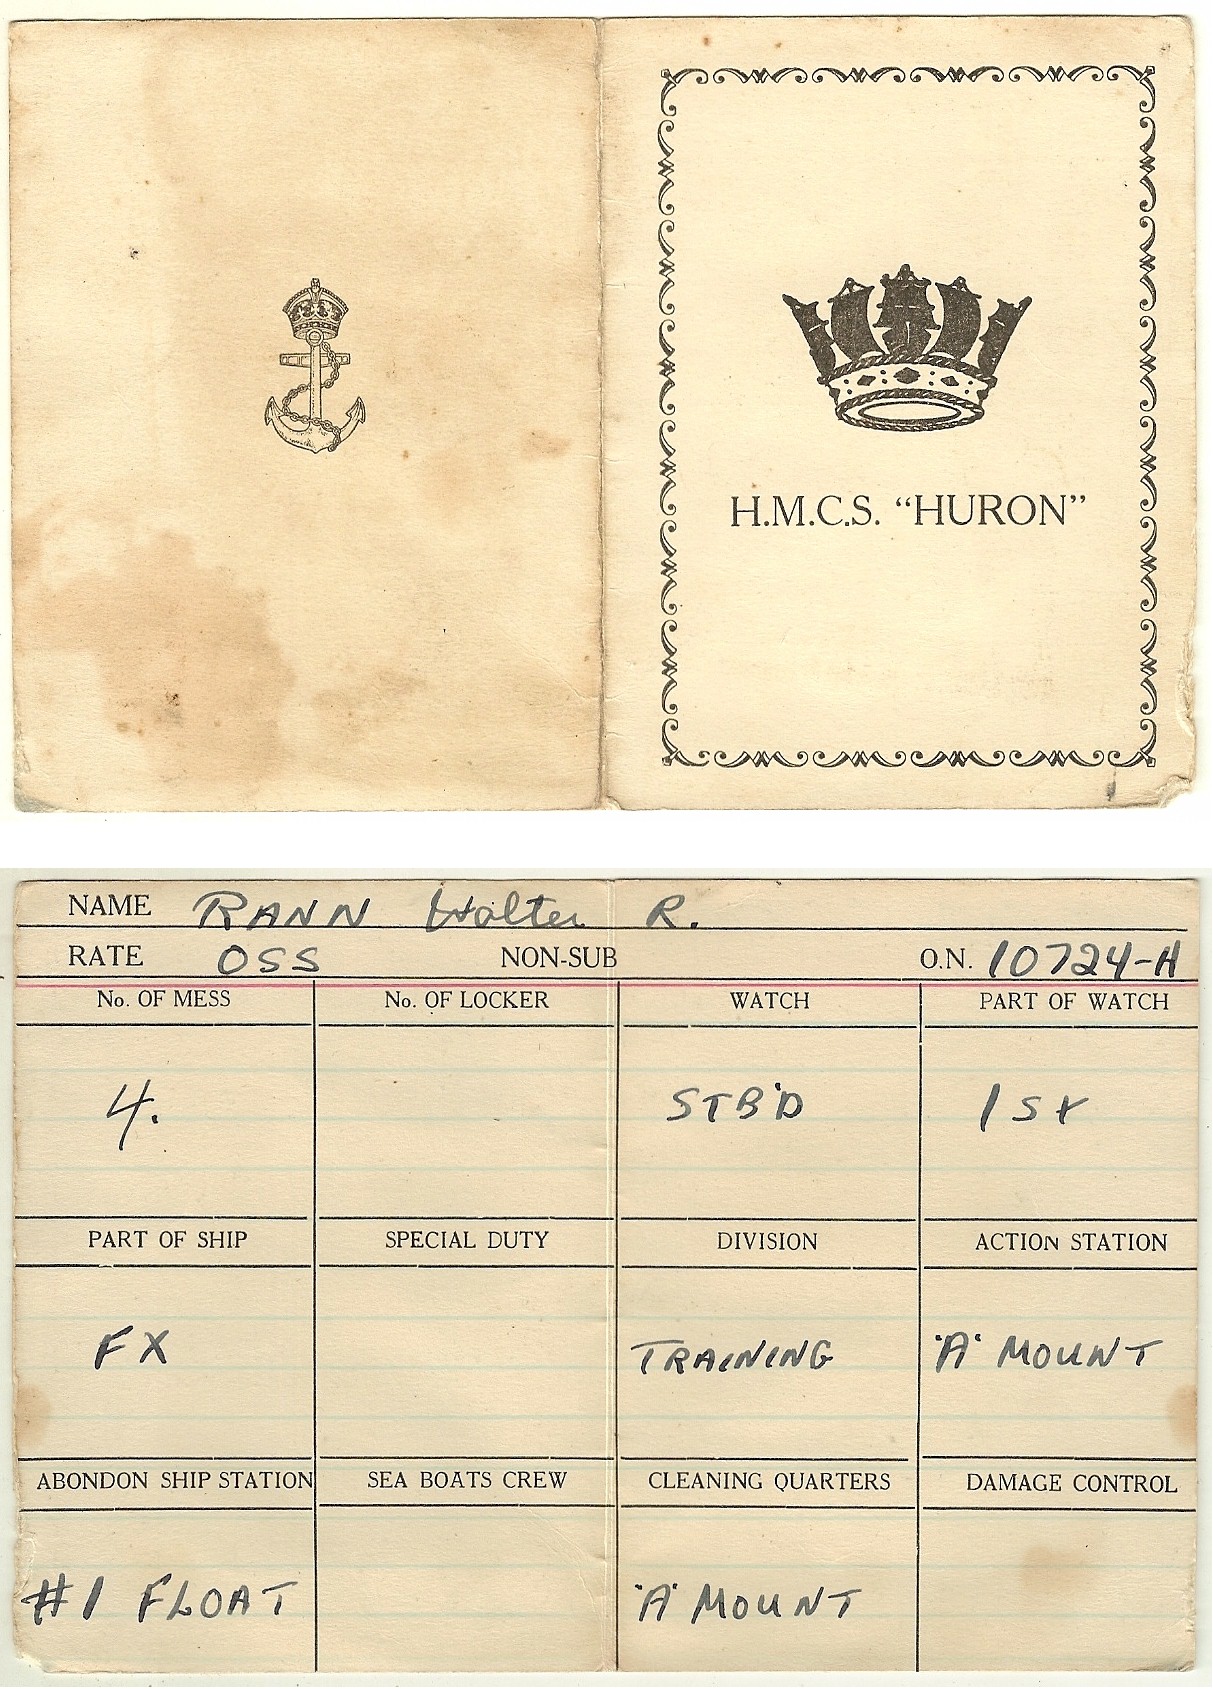 H.M.C.S. “HURON”
NAME RANN Walter R.
RATE OSS NON-SUB O.N. 10724-H
No. OF MESS No. OF LOCKER WATCH PART OF WATCH
4. STB'D 1ST
PART OF SHIP SPECIAL DUTY DIVISION ACTION STATION
FX TRAINING 'A' MOUNT
ABONDON SHIP STATION SEA BOATS CREW CLEANING QUARTERS DAMAGE CONTROL
#1 FLOAT 'A' MOUNT